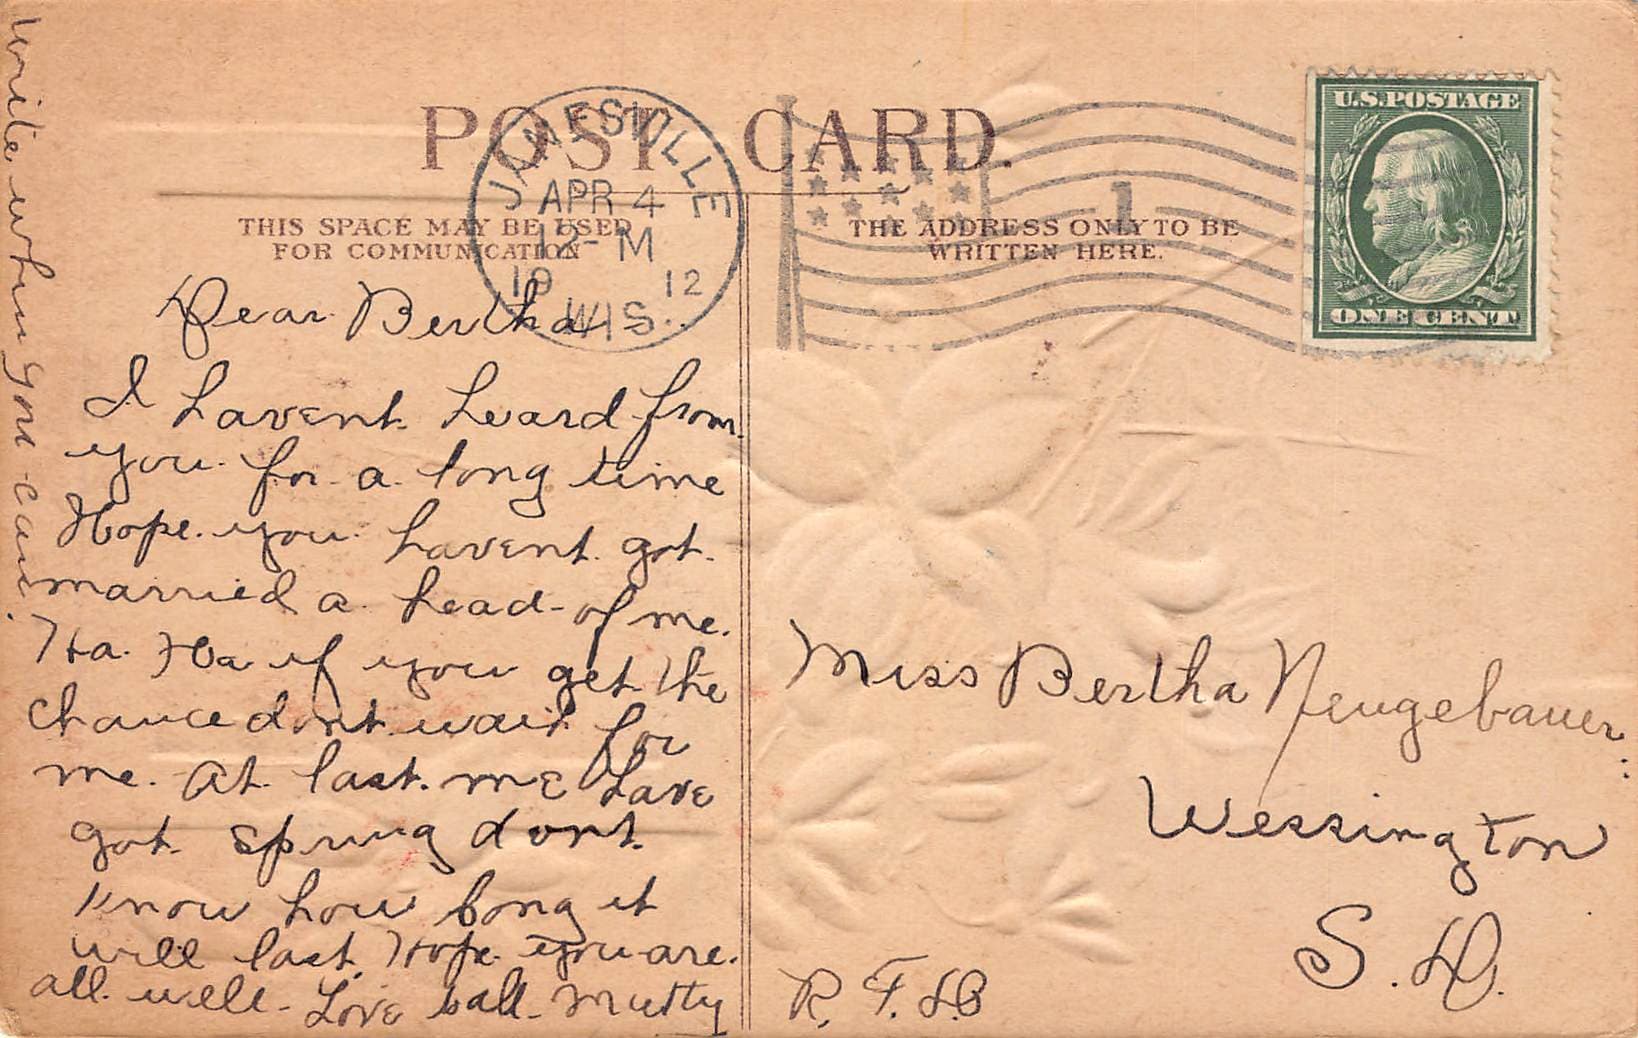 POST CARD.
JANESVILLE
APR 4
12-M
19 12
WIS.
1
U.S. POSTAGE
ONE CENT
THIS SPACE MAY BE USED
FOR COMMUNICATION
THE ADDRESS ONLY TO BE
WRITTEN HERE.
Dear Bertha
I havent heard from
you for a long time
Hope you havent got
married a head of me.
Ha. Ha if you get the
chance dont wait for
me. At last me have
got spring dont
know how long it
will last. Hope you are
all well. Love to all
write when you can.
Miss Bertha Neugebauer
Wessington
S.D.
R.F.D